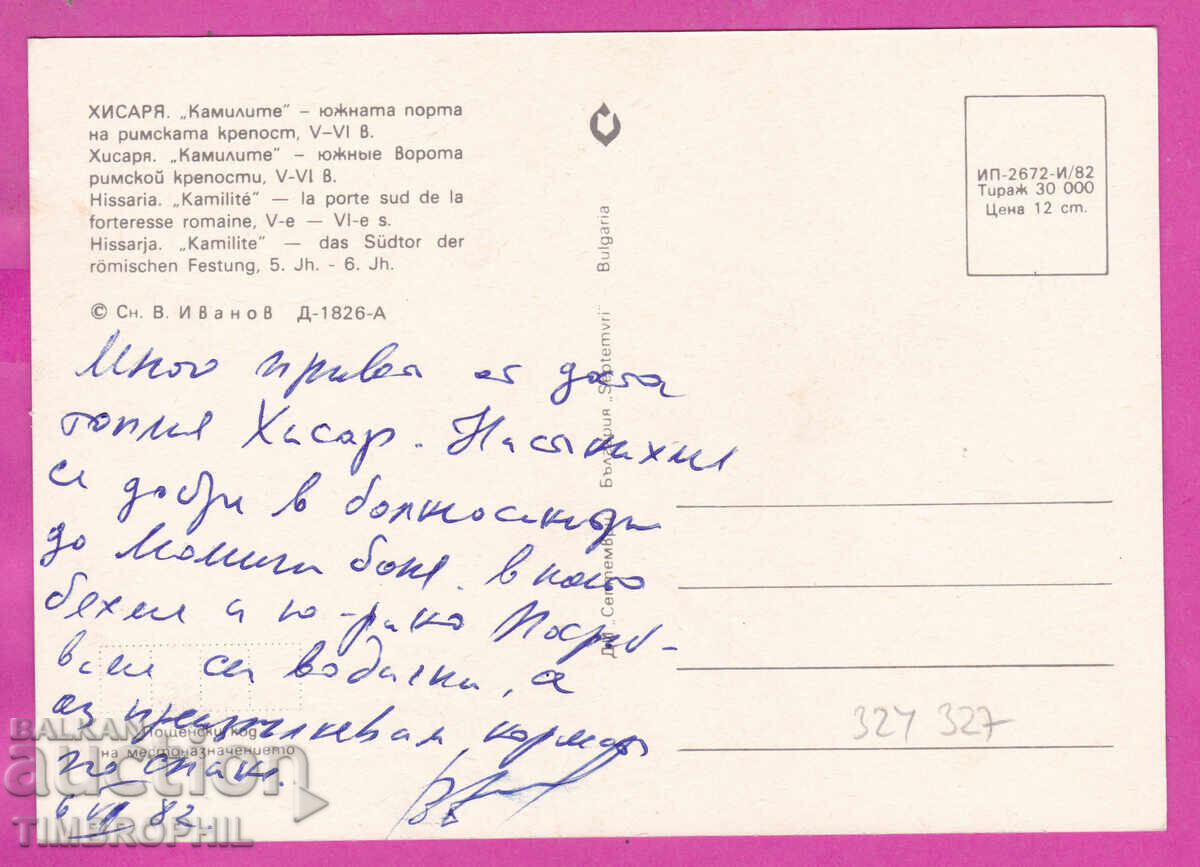 ХИСАРЯ. „Камилите" – южната порта
на римската крепост, V–VI в.
Хисаря. „Камилите" – южные ворота
римской крепости, V-VI в.
Hissaria. „Kamilité" — la porte sud de la
forteresse romaine, V-e — VI-e s.
Hissarja. „Kamilite" — das Südtor der
römischen Festung, 5. Jh. - 6. Jh.
© Сн. В. Иванов Д-1826-А
ИП-2672-И/82
Тираж 30 000
Цена 12 ст.
ДИ „Септември" България „Septemvri" Bulgaria
Много привет от
топлия Хисар. Настанихме
се добре в
до Момина баня. в която
бехме и ю-
си водички, а
аз
по
6 VI 82.
Пощенски код
на местоназначението
324 327
BALKAN
auction
TIMBROPHIL